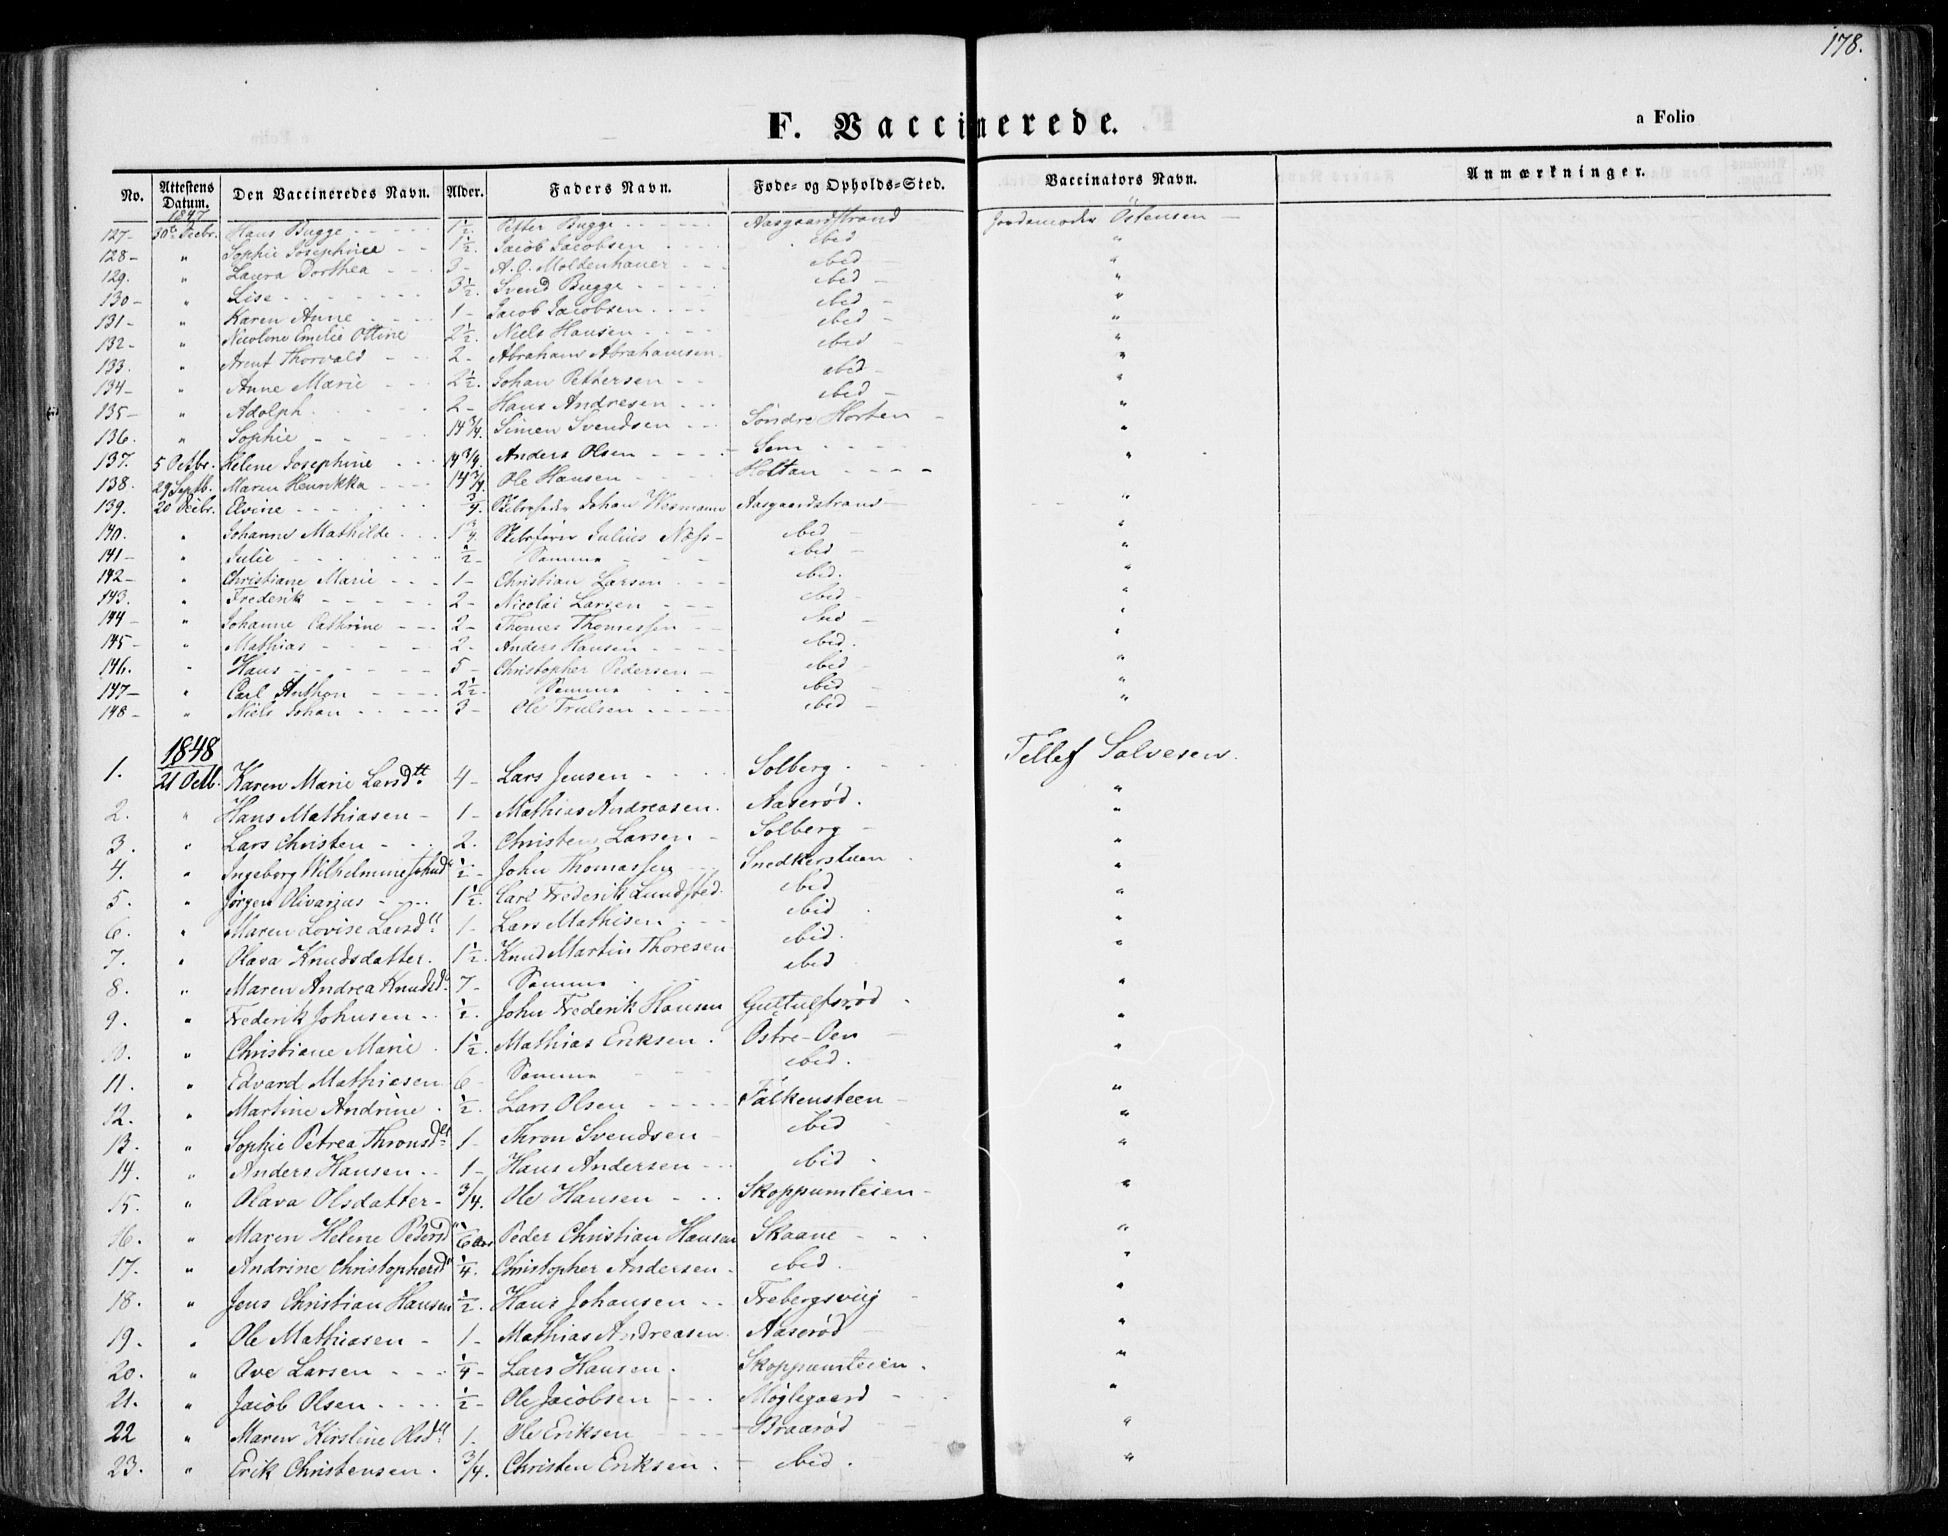 178.
F. Vaccinerede.
a Folio
No. Attestens Datum. Den Vaccineredes Navn. Alder. Faders Navn. Føde- og Opholds-Sted. Vaccinators Navn. Anmærkninger.
1847
127- 30te Decbr. Hans Bugge 1½ Petter Bugge Aasgaardstrand Jordemoder Östensen
128- " Sophie Josephine 1½ Jacob Jacobsen ibid "
129. " Laura Dorthea 3- A. C. Moldenhauer ibid "
130- " Lise 3½ Svend Bugge ibid "
131- " Karen Anne 1- Jacob Jacobsen ibid "
132- " Nicoline Emilie Ottine 2½ Niels Hansen ibid "
133. " Arent Thorvald 2- Abraham Abrahamsen ibid "
134- " Anne Marie 2½. Johan Pettersen ibid "
135- " Adolph 2- Hans Andresen ibid "
136. " Sophie 14¾. Simen Svendsen Söndre Horten "
137. 5 Octbr. Helene Josephine 14¾. Anders Olsen Sem "
138. 29 Septb. Maren Henrikka 14¾ Ole Hansen Holtan
139. 20 Decbr. Elvine ¾. Johan Wesmann Aasgaardstrand "
140. " Johanne Mathilde 1¾ Julius Næss ibid "
141- " Julie ½- Samme ibid "
142- " Christiane Marie 1- Christian Larsen ibid. "
143. " Frederik 2- Nicolai Larsen ibid "
144- " Johanne Cathrine 2- Thomes Thomessen ibid "
145- " Mathias 2- Anders Hansen ibid. "
146. " Hans 5- Christopher Pedersen ibid "
147- " Carl Anthon 2½- Samme ibid "
148- " Niels Johan 3- Ole Trulsen ibid "
1848
1. 21 Octb. Karen Marie Larsdtt. 4- Lars Jensen Solberg. Tellef Salvesen.
2. " Hans Mathiasen 1- Mathias Andreasen. Aaserød. "
3. " Lars Christen 2. Christen Larsen Solberg "
4. " Ingeborg Wilhelmine Johnd. ½- John Thomassen Snedkerstuen "
5. " Jørgen Olivarius 1½. Carl Frederik Lundsted. ibid "
6. " Maren Lovise Larsdtt 1- Lars Mathisen ibid "
7. " Olava Knudsdatter. 1½. Knud Martin Thoresen ibid. "
8. " Maren Andrea Knudsd. 7- Samme ibid "
9. " Frederik Johnsen ½. John Frederik Hansen Gultulfsrød "
10. " Christiane Marie. 1½. Mathias Eriksen. Østre-Oen "
11. " Edvard Mathiesen 6- Samme ibid. "
12. " Martine Andrine. ½. Lars Olsen Falkensteen "
13. " Sophie Petrea Thronsdtt. 1- Thron Svendsen ibid "
14. " Anders Hansen 1- Hans Andersen ibid "
15. " Olava Olsdatter- ¾. Ole Hansen Skoppumteien "
16. " Maren Helene Pedersd. 6 Peder Christian Hansen Skaane "
17. " Andrine Christophersd. ¼. Christopher Andersen. ibid. "
18. " Jens Christian Hansen ½. Hans Johansen Frebergsviig "
19. " Ole Mathiasen 1- Mathias Andreasen Aaserød "
20. " Ove Larsen ¼- Lars Hansen. Skoppumteien. "
21. " Jacob Olsen ½- Ole Jacobsen Møglegaard "
22 " Maren Kirstine Olsdtt. 1. Ole Eriksen Braarød "
23. " Erik Christensen. ¾. Christen Eriksen. ibid. "